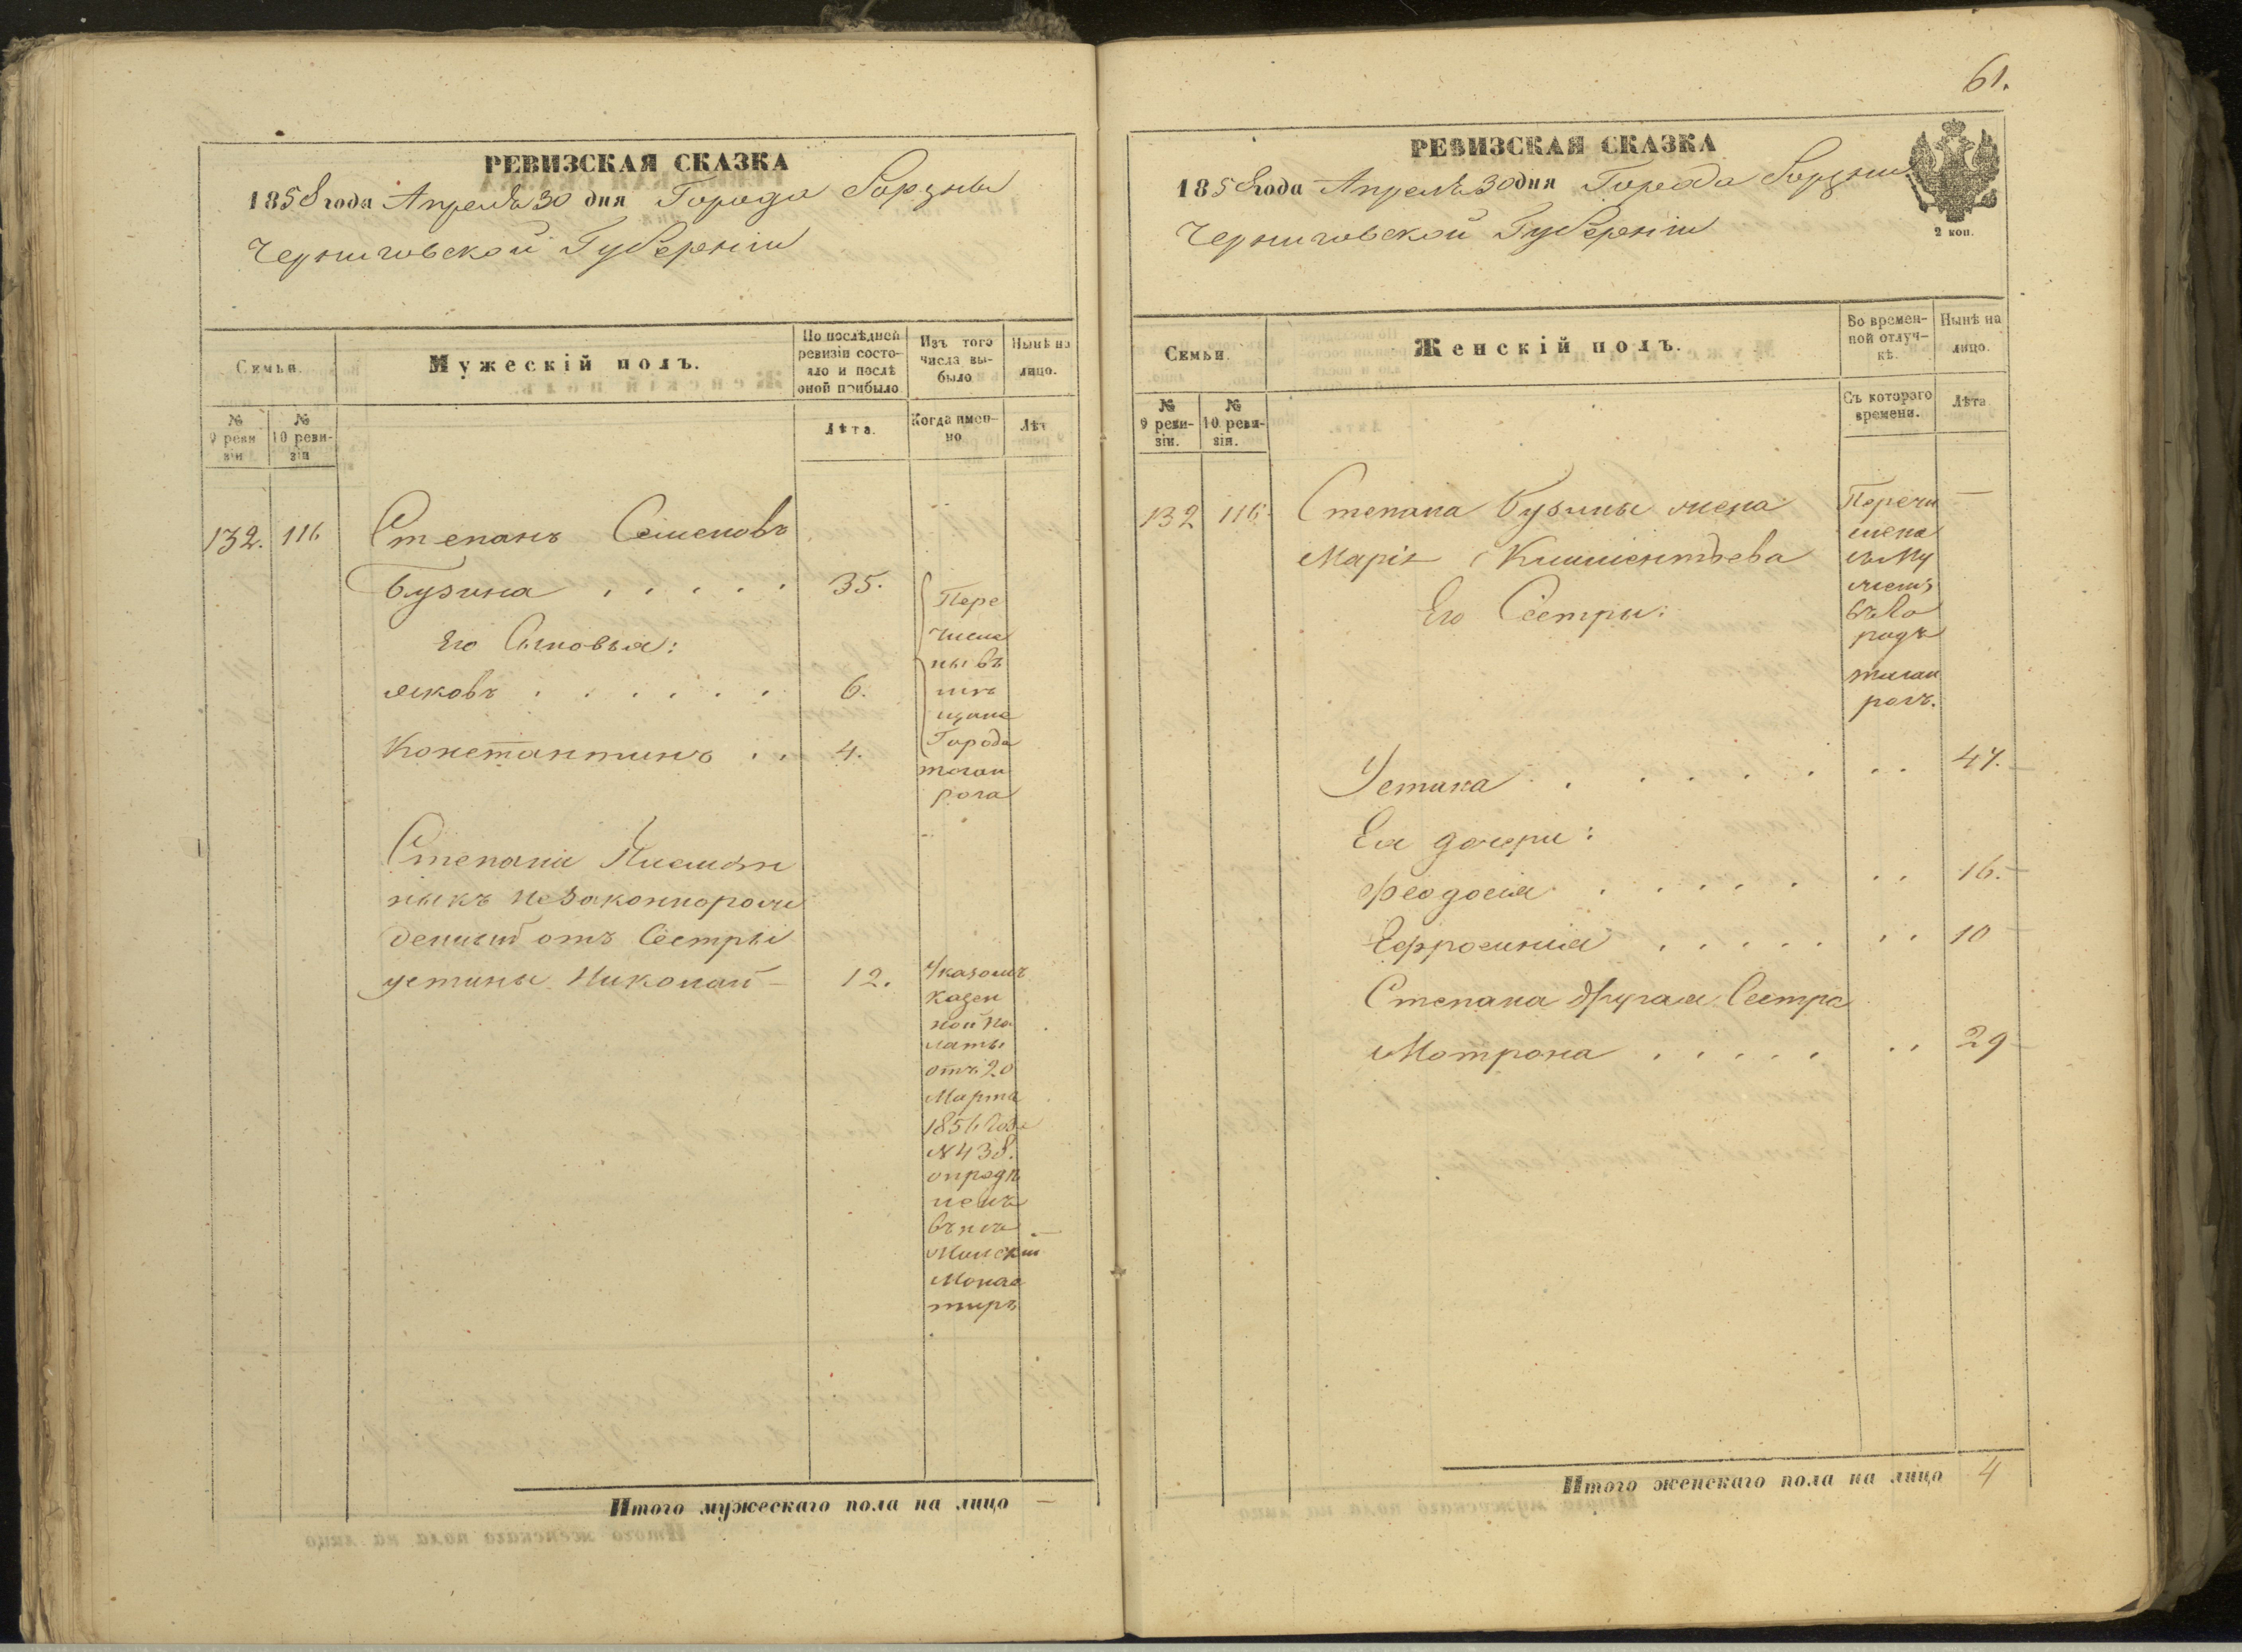 РЕВИЗСКАЯ СКАЗКА
1858 года Апреля 30 дня Города Борзны
Черниговской Губерніи
Семьи.
Мужескій полъ.
По послѣдней ревизіи состояло и послѣ оной прибыло
Изъ того числа выбыло
Нынѣ на лицо.
№ 9 ревизіи
№ 10 ревизіи
Лѣта.
Когда именно
Лѣт
132. 116 Степанъ Семеновъ
Бузина . . . . . 35.
Его Сыновья:
Яковъ . . . . . . 6.
Константинъ . . 4.
Пере
числе
ны въ
мѣ
щане
Города
таган
рога
Степана Племян
никъ незаконнорож
денный отъ Сестры
Устины Николай — 12.
Указомъ
Казен
ной Па
латы
отъ 20
Марта
1856 года
№ 438.
опредѣ
ленъ
въ
Монас
тырь
Итого мужескаго пола на лицо —
61.
РЕВИЗСКАЯ СКАЗКА
1858 года Апреля 30 дня Города Борзны
Черниговской Губерніи
2 коп.
Семьи.
Женскій полъ.
Во временной отлучкѣ.
Нынѣ на лицо.
№ 9 ревизіи.
№ 10 ревизія.
Съ котораго времени.
Лѣта
132 116 Степана Бузины жена
Марія Климентьева
Его Сестры:
Перечи
слена
съ Му
жемъ
въ Го
родъ
таган
рогъ.
—
Устина . . . . . . . 47.
Ея дочери:
Феодосия . . . . . . . 16.
Ефросиния . . . . . . . 10
Степана другая Сестра
Мотрона . . . . . . . 29
Итого женскаго пола на лицо 4